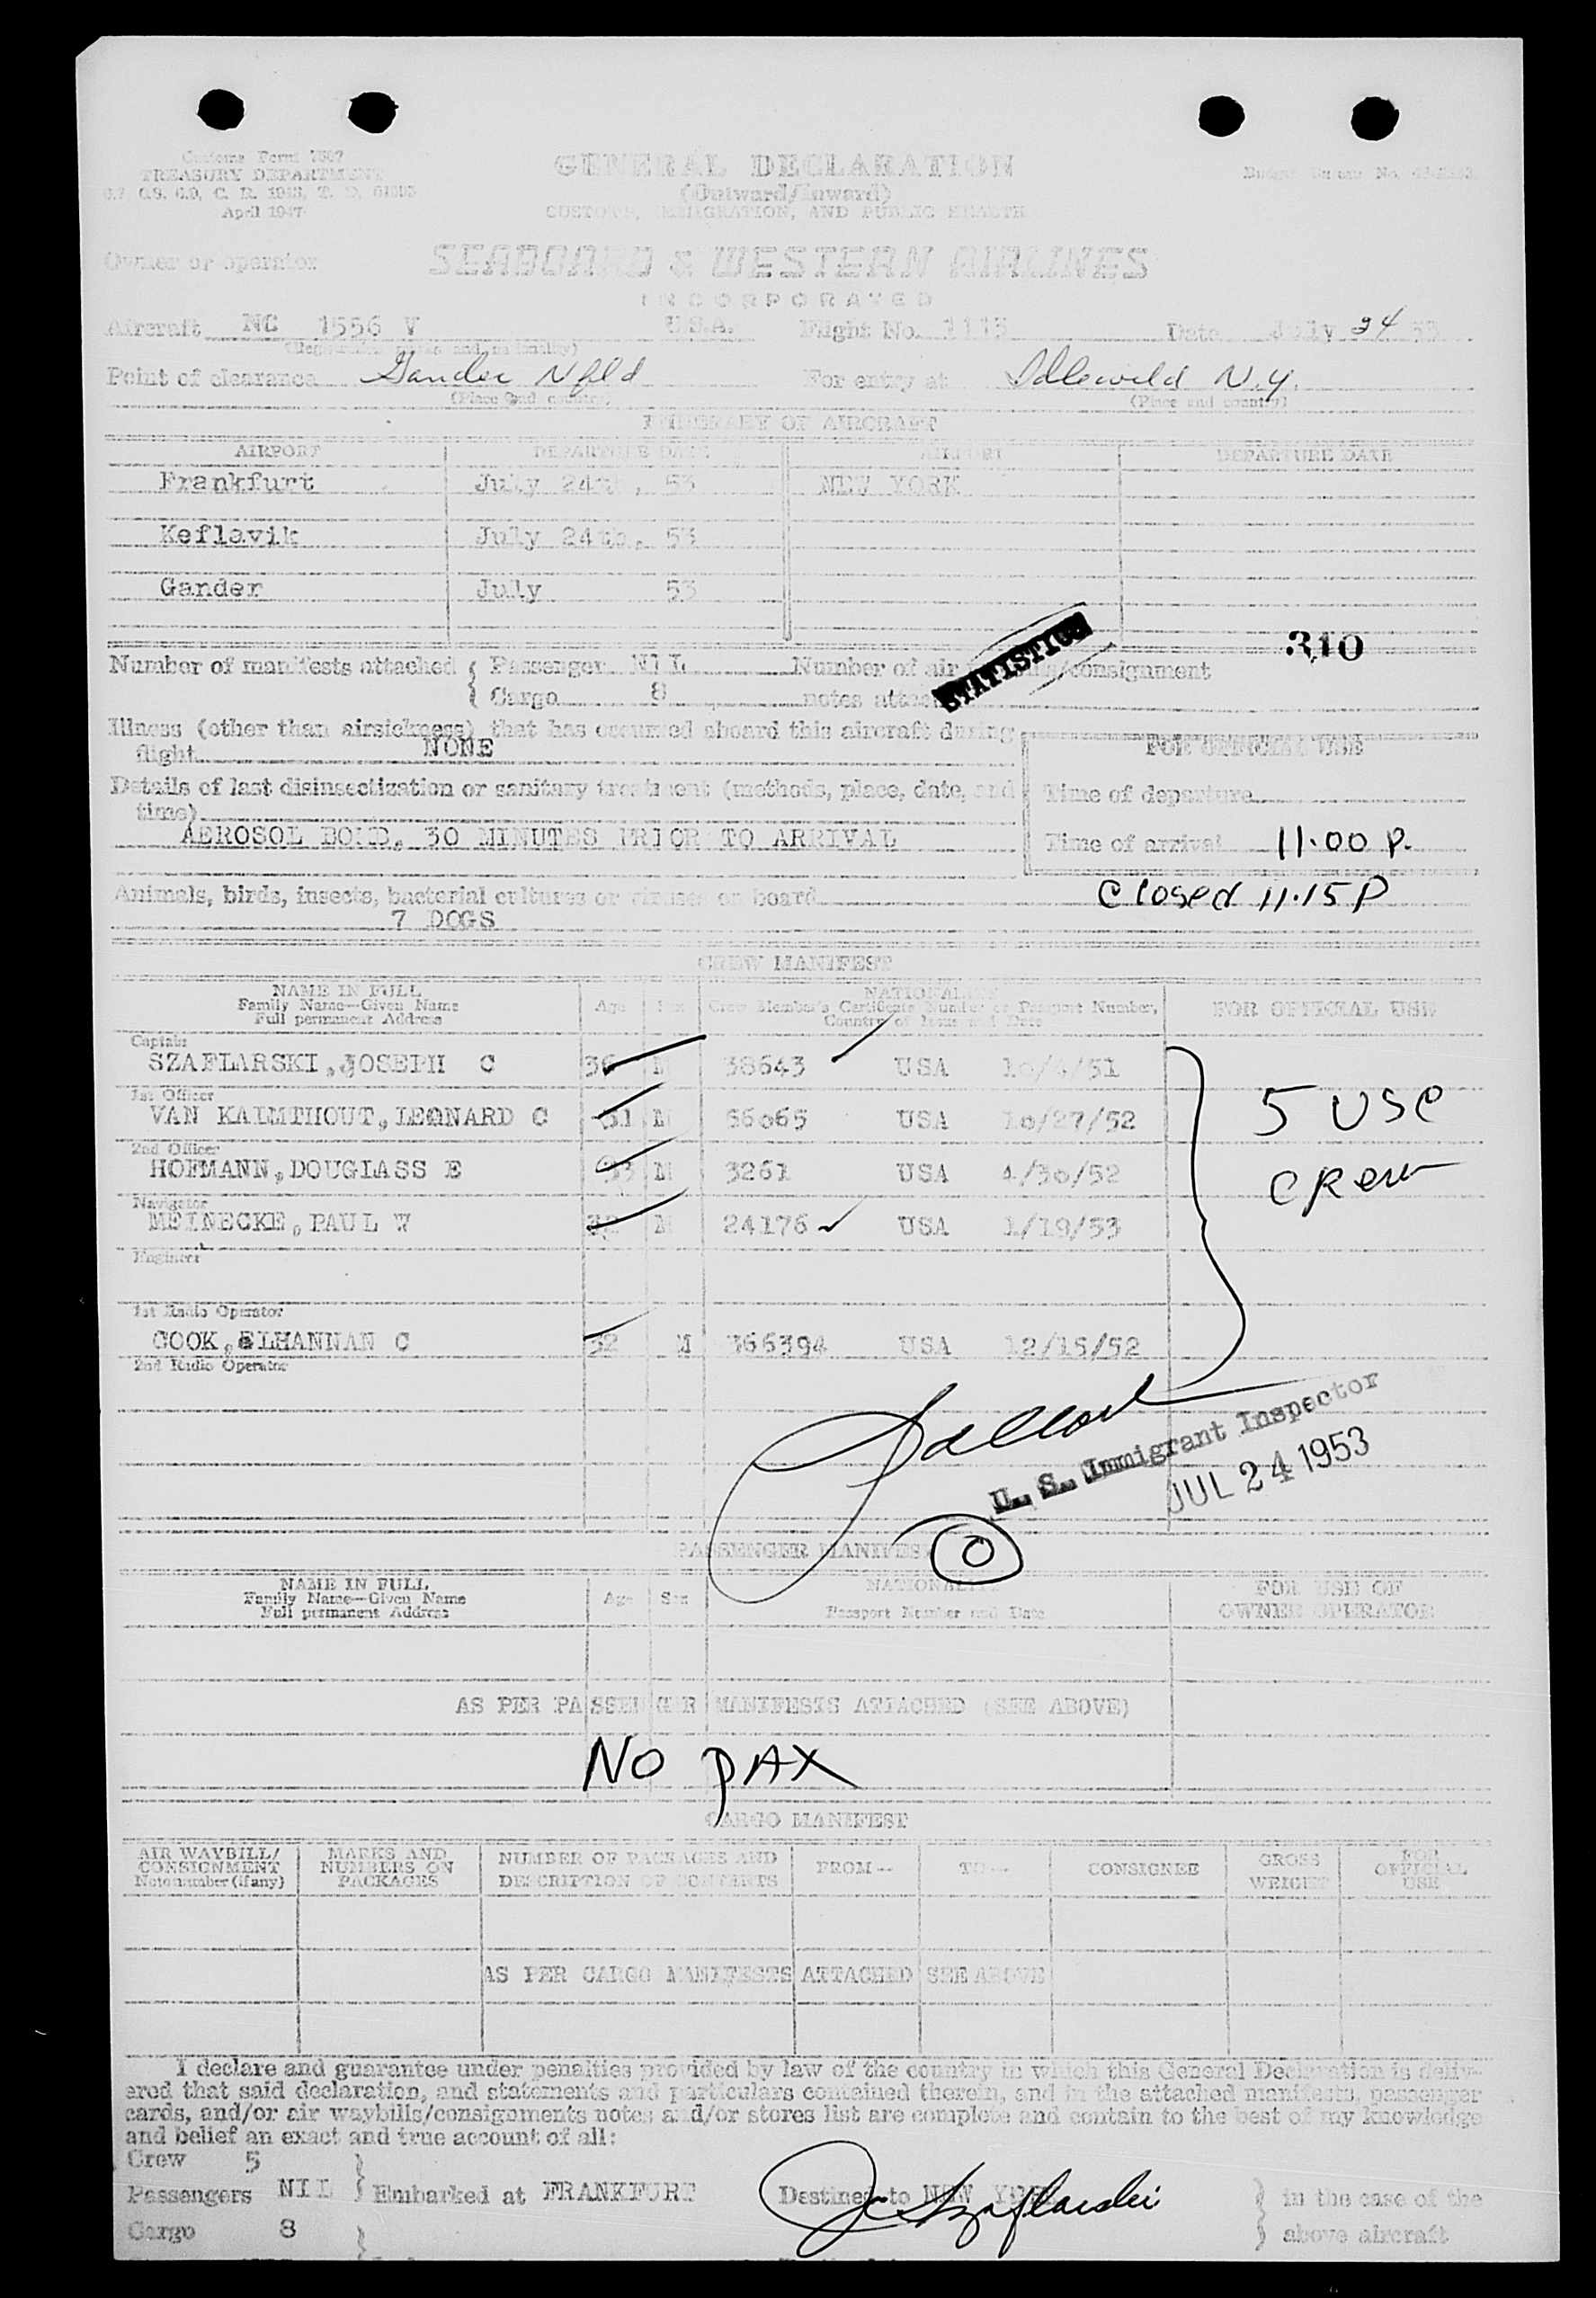 Customs Form 7507
TREASURY DEPARTMENT
April 1947
GENERAL DECLARATION
(Outward/Inward)
CUSTOMS, IMMIGRATION, AND PUBLIC HEALTH
Budget Bureau No.
Owner or operator
SEABOARD & WESTERN AIRLINES
INCORPORATED
Aircraft NC 1556 V U.S.A. Flight No. 1113 Date July 24 53
(Registration marks and nationality)
Point of clearance Gander Nfld For entry at Idlewild N.Y.
(Place and country) (Place and country)
ITINERARY OF AIRCRAFT
AIRPORT DEPARTURE DATE AIRPORT DEPARTURE DATE
Frankfurt July 24th, 53 NEW YORK
Keflavik July 24th, 53
Gander July 53
STATISTICS
310
Number of manifests attached { Passenger NIL Number of air /consignment
Cargo 8 notes attached
Illness (other than airsickness) that has occurred aboard this aircraft during
flight NONE
FOR OFFICIAL USE
Details of last disinsectization or sanitary treatment (methods, place, date, and
time)
AEROSOL BOMB, 30 MINUTES PRIOR TO ARRIVAL
Time of departure
Time of arrival 11.00 P.
Closed 11.15 P
Animals, birds, insects, bacterial cultures or viruses on board
7 DOGS
CREW MANIFEST
NAME IN FULL
Family Name—Given Name
Full permanent Address
Age Sex
NATIONALITY
Crew Member's Certificate Number or Passport Number,
Country of Issue and Date
FOR OFFICIAL USE
Captain
SZAFLARSKI, JOSEPH C 36 M 38643 USA 10/4/51
1st Officer
VAN KALMTHOUT, LEONARD C 31 M 56065 USA 10/27/52
2nd Officer
HOFMANN, DOUGLASS E 33 M 3261 USA 4/30/52
Navigator
MEINECKE, PAUL W 32 M 24176 USA 1/19/53
5 USC
CREW
Engineer
1st Radio Operator
COOK, ELHANNAN C 32 M 366394 USA 12/15/52
2nd Radio Operator
U. S. Immigrant Inspector
JUL 24 1953
PASSENGER MANIFEST 0
NAME IN FULL
Family Name—Given Name
Full permanent Address
Age Sex
NATIONALITY
Passport Number and Date
FOR USE OF
OWNER OPERATOR
AS PER PASSENGER MANIFESTS ATTACHED (SEE ABOVE)
NO PAX
CARGO MANIFEST
AIR WAYBILL/
CONSIGNMENT
Note number (if any)
MARKS AND
NUMBERS ON
PACKAGES
NUMBER OF PACKAGES AND
DESCRIPTION OF CONTENTS
FROM—
TO—
CONSIGNEE
GROSS
WEIGHT
FOR
OFFICIAL
USE
AS PER CARGO MANIFESTS ATTACHED SEE ABOVE
I declare and guarantee under penalties provided by law of the country in which this General Declaration is deliv-
ered that said declaration, and statements and particulars contained therein, and in the attached manifests, passenger
cards, and/or air waybills/consignments notes and/or stores list are complete and contain to the best of my knowledge
and belief an exact and true account of all:
Crew 5
Passengers NIL } Embarked at FRANKFURT Destined to NEW YORK } in the case of the
Cargo 8 above aircraft
J C Szaflarski